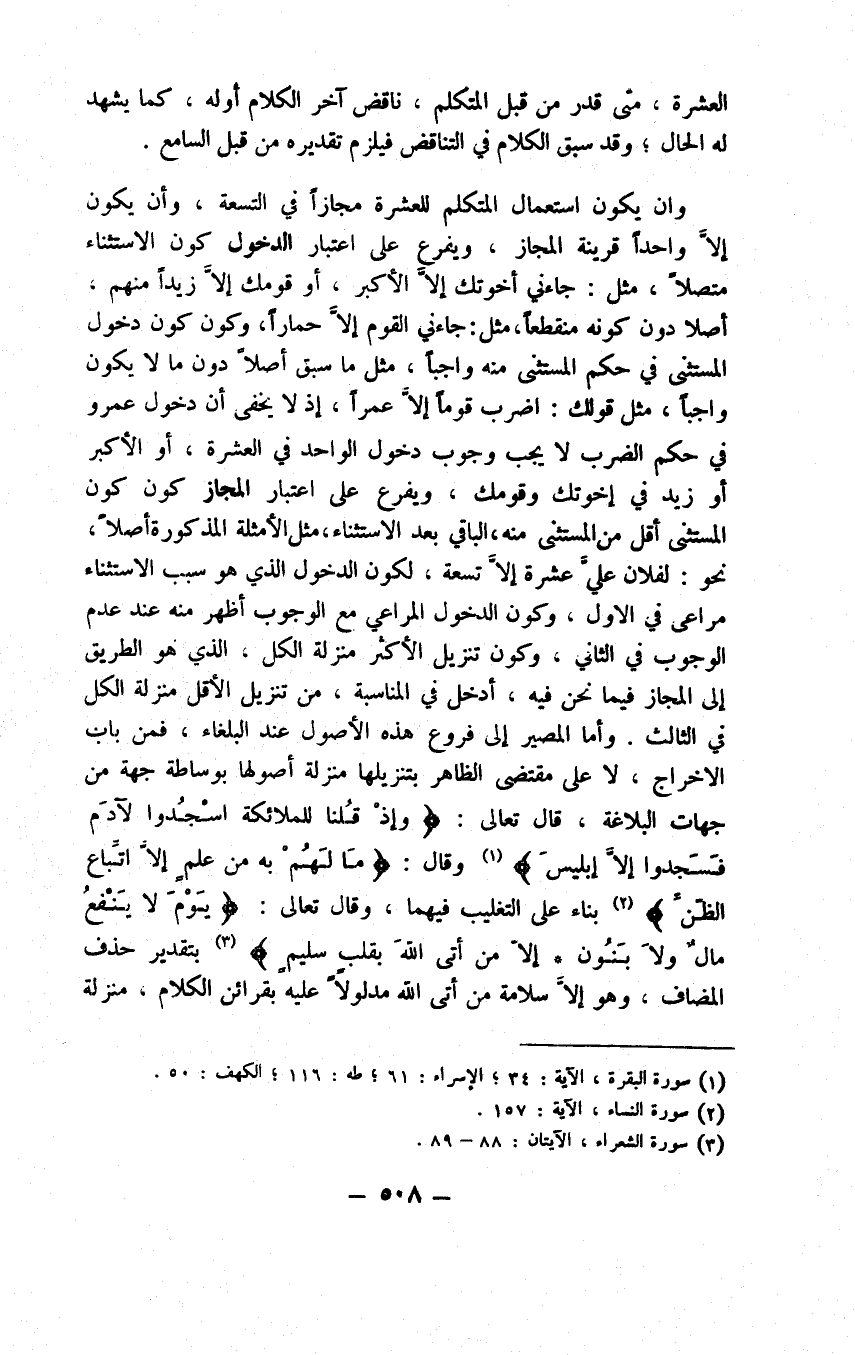 العشرة ، متى قدر من قبل المتكلم ، ناقض آخر الكلام أوله ، كما يشهد
له الحال ؛ وقد سبق الكلام في التناقض فيلزم تقديره من قبل السامع .
وان يكون استعمال المتكلم للعشرة مجازاً في التسعة ، وأن يكون
إلاَّ واحداً قرينة المجاز ، ويفرع على اعتبار الدخول كون الاستثناء
متصلاً ، مثل : جاءني أخوتك إلاَّ الأكبر ، أو قومك إلاَّ زيداً منهم ،
أصلا دون كونه منقطعاً،مثل:جاءني القوم إلاَّ حماراً، وكون كون دخول
المستثنى في حكم المستثنى منه واجباً ، مثل ما سبق أصلاً دون ما لا يكون
واجباً ، مثل قولك : اضرب قوماً إلاَّ عمراً ، إذ لا يخفى أن دخول عمرو
في حكم الضرب لا يجب وجوب دخول الواحد في العشرة ، أو الأكبر
أو زيد في إخوتك وقومك ، ويفرع على اعتبار المجاز كون كون
المستثنى أقل من المستثنى منه،الباقي بعد الاستثناء،مثل الأمثلة المذكورة أصلاً،
نحو : لفلان عليَّ عشرة إلاَّ تسعة ، لكون الدخول الذي هو سبب الاستثناء
مراعى في الاول ، وكون الدخول المراعي مع الوجوب أظهر منه عند عدم
الوجوب في الثاني ، وكون تنزيل الأكثر منزلة الكل ، الذي هو الطريق
إلى المجاز فيما نحن فيه ، أدخل في المناسبة ، من تنزيل الأقل منزلة الكل
في الثالث . وأما المصير إلى فروع هذه الأصول عند البلغاء ، فمن باب
الاخراج ، لا على مقتضى الظاهر بتنزيلها منزلة أصولها بوساطة جهة من
جهات البلاغة ، قال تعالى : ﴿ وإذْ قُلنا للملائكة اسْجُدوا لآدَم
فَسَجدوا إلاَّ إبليسَ ﴾ (١) وقال : ﴿ مَا لَهُمْ به من علمٍ إلاَّ اتِّباع
الظّنِّ ﴾ (٢) بناء على التغليب فيهما ، وقال تعالى : ﴿ يَوْمَ لا يَنْفعُ
مالٌ ولاَ بَنُون * إلاَّ من أتى اللهَ بقلبٍ سليمٍ ﴾ (٣) بتقدير حذف
المضاف ، وهو إلاَّ سلامة من أتى الله مدلولاً عليه بقرائن الكلام ، منزلة
(١) سورة البقرة ، الآية : ٣٤ ؛ الإسراء : ٦١ ؛ طه : ١١٦ ؛ الكهف : ٥٠ .
(٢) سورة النساء ، الآية : ١٥٧ .
(٣) سورة الشعراء ، الآيتان : ٨٨ – ٨٩ .
— ٥٠٨ —